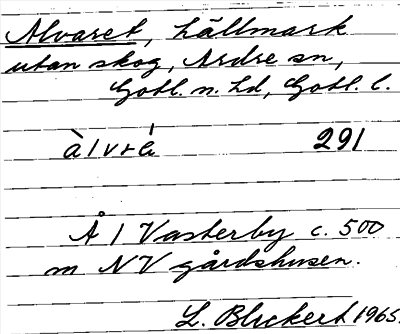 Alvaret, hällmark
utan skog, Ardre sn,
Gotl. n. hd, Gotl. l.
291
Å / Västerby c. 500
m NV gårdshusen.
L. Blickert 1965.